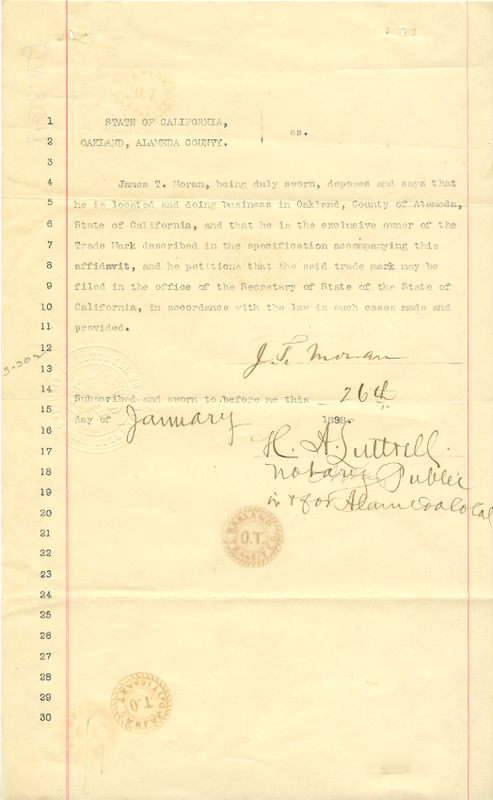 1 STATE OF CALIFORNIA,
ss.
2 OAKLAND, ALAMEDA COUNTY.
3
4 James T. Moran, being duly sworn, deposes and says that
5 he is located and doing business in Oakland, County of Alameda,
6 State of California, and that he is the exclusive owner of the
7 Trade Mark described in the specification accompanying this
8 affidavit, and he petitions that the said trade mark may be
9 filed in the office of the Secretary of State of the State of
10 California, in accordance with the law in such cases made and
11 provided.
12 J. T. Moran
3-302
13
14 Subscribed and sworn to before me this 26th
15 day of January 1898.
16 H. A. Luttrell.
17 Notary Public
18 in & for Alameda Co Cal
19
20
OAKLAND
21 O.T.
22
23
24
25
26
27
28
29 O.T.
30